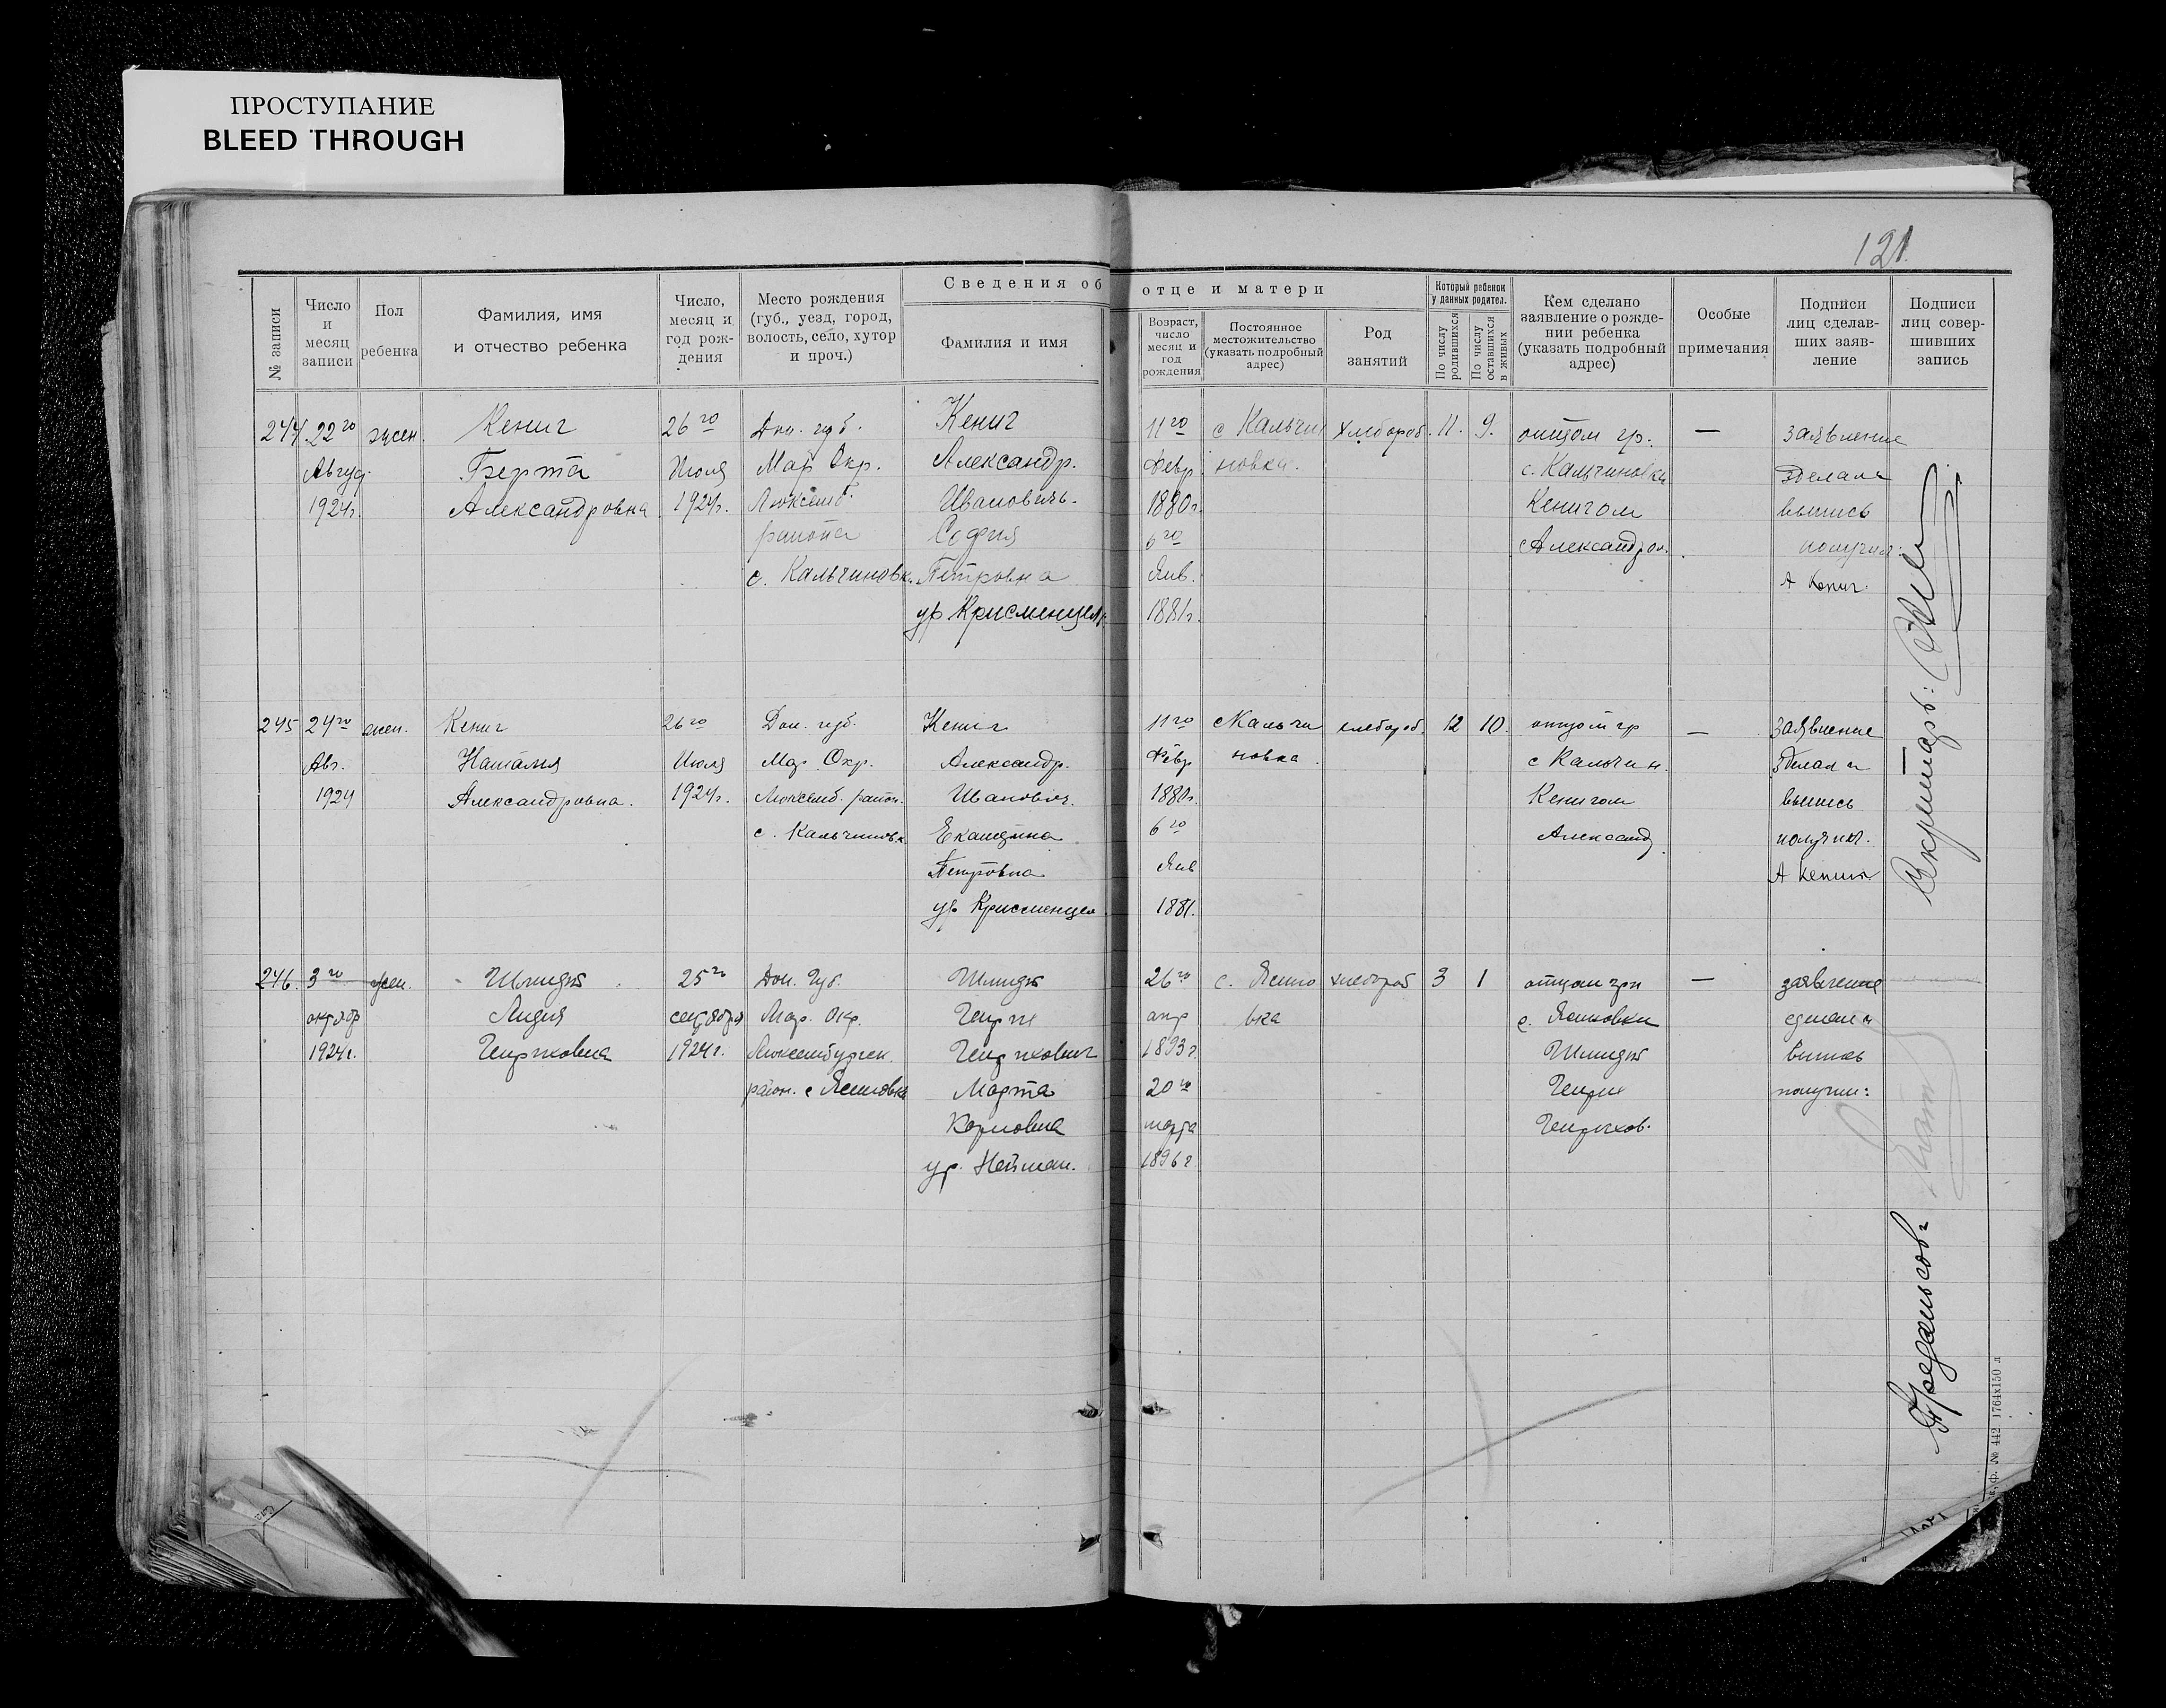 ПРОСТУПАНИЕ
BLEED THROUGH
121.
Сведения об отце и матери
№ записи
Число и месяц записи
Пол ребенка
Фамилия, имя и отчество ребенка
Число, месяц и год рождения
Место рождения (губ., уезд, город, волость, село, хутор и проч.)
Фамилия и имя
Возраст, число месяц и год рождения
Постоянное местожительство (указать подробный адрес)
Род занятий
Который ребенок у данных родител.
По числу родившихся
По числу оставшихся в живых
Кем сделано заявление о рождении ребенка (указать подробный адрес)
Особые примечания
Подписи лиц сделавших заявление
Подписи лиц совершивших запись
244 22го жен. Кениг 26го Дон. губ. Кениг 11го с Кальчи хлебороб. 11. 9. отцом гр. — заявление
Август Берта Июля Мар Окр. Александр. Февр. новка. с. Кальчиновки зделал
1924г. Александровна 1924г. Люксемб. Иванович. 1880г. Кенигом выпись
района София 6го Александром. получил
с. Кальчиновк. Петровна Янв. А Кениг
ур Крисменцел 1881г.
245 24го жен. Кениг 26го Дон. губ. Кениг 11го с Кальчи хлебороб. 12 10. отцом гр — заявление
Авг. Наталия Июля Мар Окр. Александр. Февр новка с Кальчин. Зделал
1924 Александровна. 1924г. Люксемб. район. Иванович. 1880г. Кенигом выпись
с. Кальчиновк Екатерина 6го Александ. получил.
Петровна Янв А Кениг
ур Крисменцел 1881.
246. 3го жен. Шмидт 25го Дон. Губ. Шмидт 26го с. Ясино хлебороб 3 1 отцом грн — заявление
октябр Лидия сентября Мар. Окр. Генрих апр вка с. Ясиновки сделал
1924г. Генриховна 1924г. Люксембургск. Генрихович 1893г. Шмидт выпись
район. с Ясиновка Марта 20го Генрих получил:
Карловна марта Генрихов.
ур. Нейман. 1896г.
Секретарь:
№ 442 1764х150 л